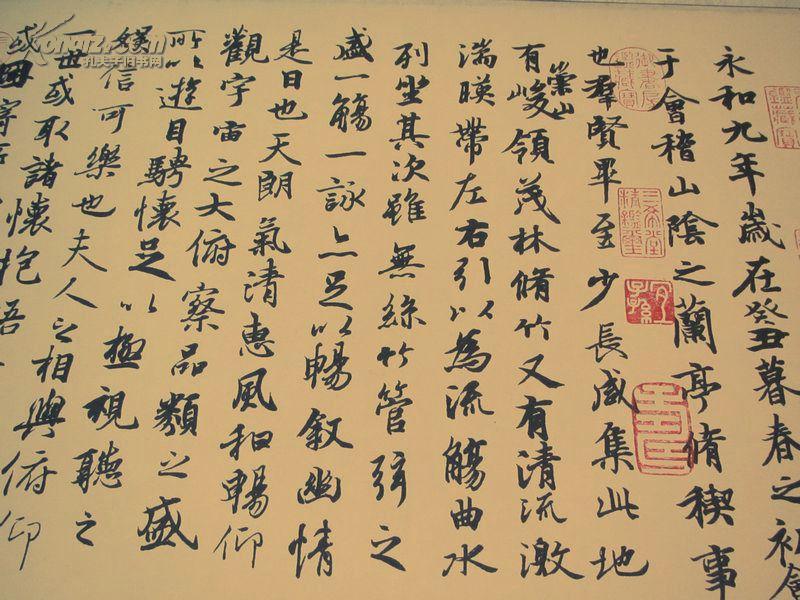 永和九年歲在癸丑暮春之初會
于會稽山陰之蘭亭脩稧事
也羣賢畢至少長咸集此地
有崇山峻領茂林脩竹又有清流激
湍暎帶左右引以為流觴曲水
列坐其次雖無絲竹管弦之
盛一觴一詠亦足以暢叙幽情
是日也天朗氣清惠風和暢仰
觀宇宙之大俯察品類之盛
所以遊目騁懷足以極視聽之
娛信可樂也夫人之相與俯仰
一世或取諸懷抱悟
或因寄
孔夫子旧书网